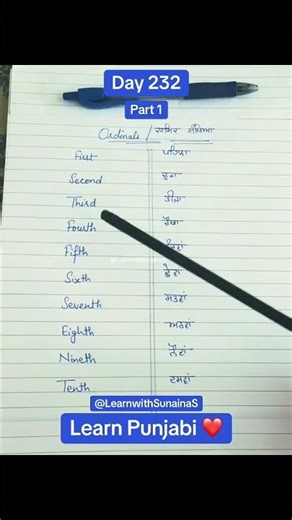 Day 232
Part 1
Ordinals / ਸੰਖਿਆ
First ਪਹਿਲਾ
Second ਦੂਜਾ
Third ਤੀਜਾ
Fourth ਚੌਥਾ
Fifth
Sixth ਛੇਵਾਂ
Seventh ਸਤਵਾਂ
Eighth ਅਠਵਾਂ
Nineth ਨੌਵਾਂ
Tenth ਦਸਵਾਂ
@LearnwithSunainaS
Learn Punjabi ❤️